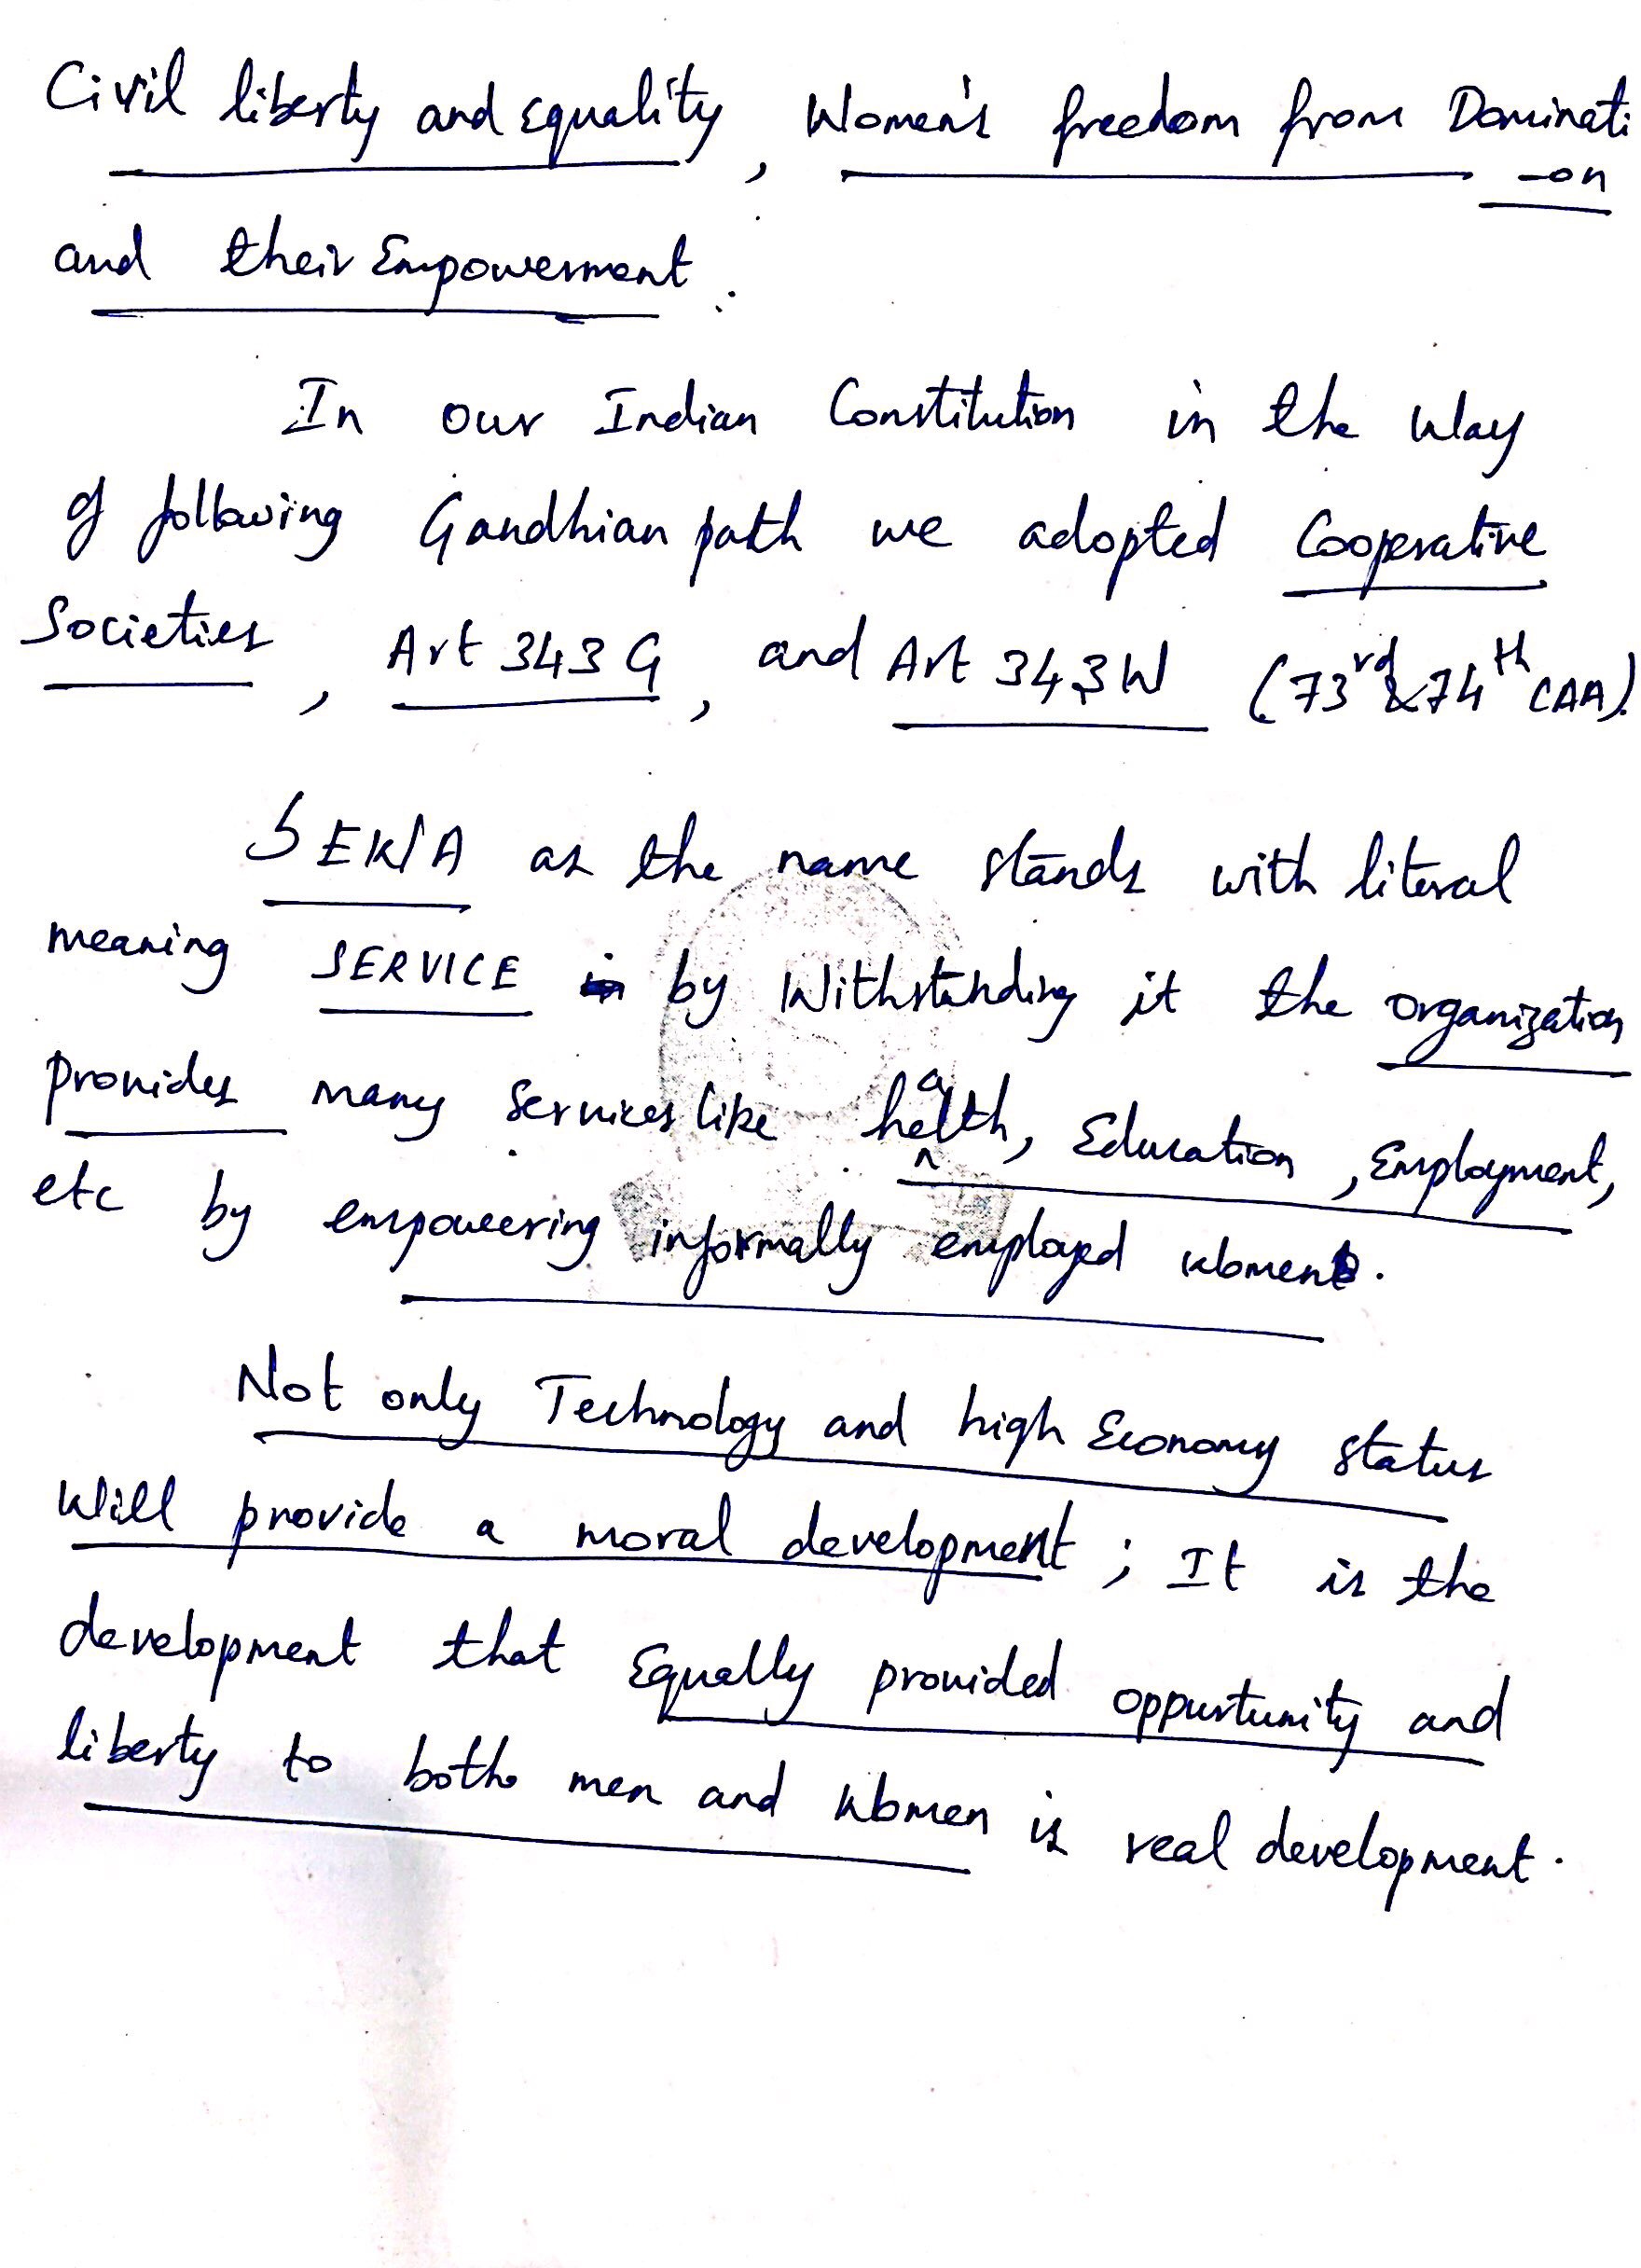 Civil liberty and equality, Women's freedom from Dominati
-on
and their Empowerment.
In our Indian Constitution in the way
of following Gandhian path we adopted Cooperative
Societies, Art 343 G, and Art 343W (73rd & 74th CAA).
SEWA as the name stands with literal
meaning SERVICE by Withstanding it the organization
provides many services like health, Education, Employment,
etc by empowering informally employed women.
Not only Technology and high Economy status
will provide a moral development; It is the
development that Equally provided oppurtunity and
liberty to both men and women is real development.